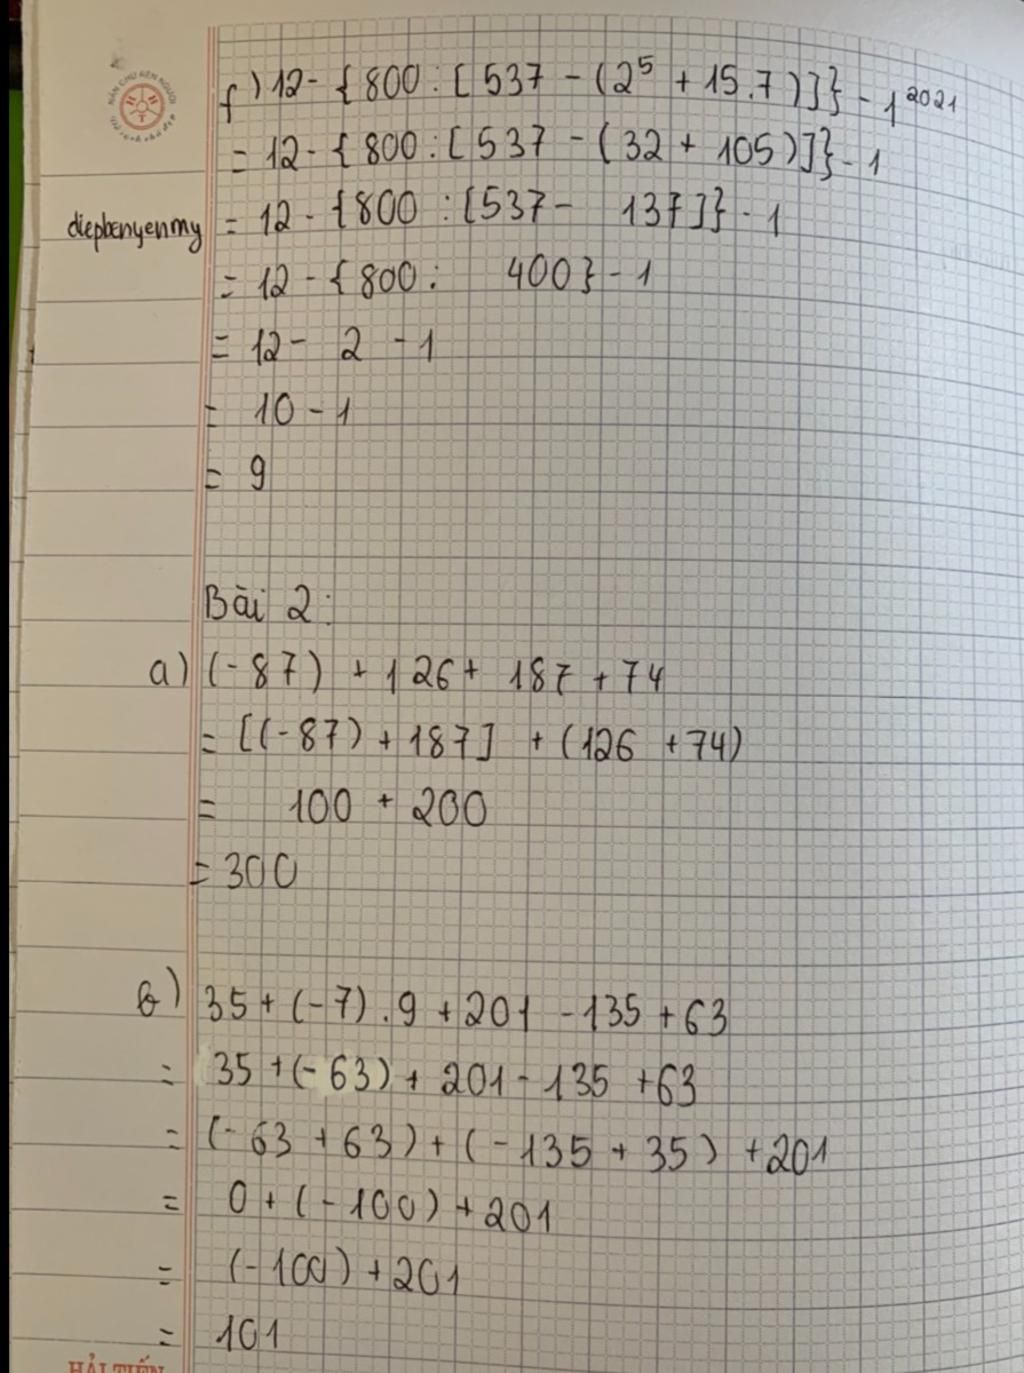 NÂN CHỮ RÈN NGƯỜI
f) 12 - {800 : [537 - (2⁵ + 15.7)]} - 1²⁰²¹
= 12 - {800 : [537 - (32 + 105)]} - 1
diepbenyenmy
= 12 - {800 : [537 - 137]} - 1
= 12 - {800 : 400} - 1
= 12 - 2 - 1
= 10 - 1
= 9
Bài 2:
a) (-87) + 126 + 187 + 74
= [(-87) + 187] + (126 + 74)
= 100 + 200
= 300
b) 35 + (-7) . 9 + 201 - 135 + 63
= 35 + (-63) + 201 - 135 + 63
= (-63 + 63) + (-135 + 35) + 201
= 0 + (-100) + 201
= (-100) + 201
= 101
HẢI TIẾN